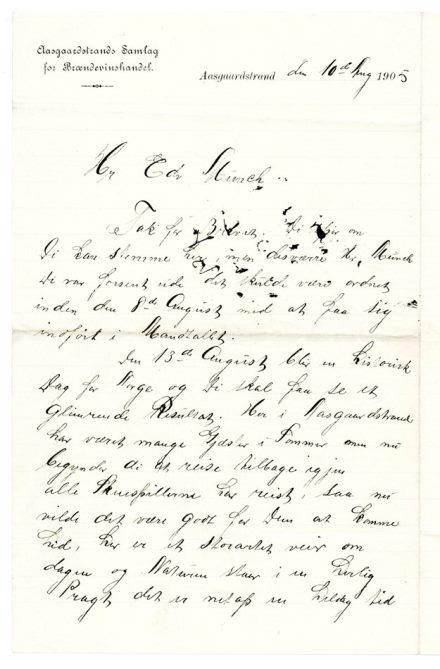 Aasgaardstrands Samlag
for Brændevinshandel.
Aasgaardstrand den 10de Aug 1905
Hr Edv Munch
Tak for Brevet. De spør om
De kan stemme her, men desværre Hr. Munch
De var forsent ude det skulde være ordnet
inden den 8de August med at faa sig
indført i Mandtallet.
Den 13de August blir en historisk
Dag for Norge og De skal faa se et
glimrende Resultat. Her i Aasgaardstrand
har været mange Gjæster i Sommer men nu
begynder de at reise tilbage igjen
alle Skuespillerne har reist, saa nu
vilde det være godt for Dem at komme
hid, her er et storartet veir om
dagen og Naturen staar i en herlig
Pragt det er netop en deilig tid